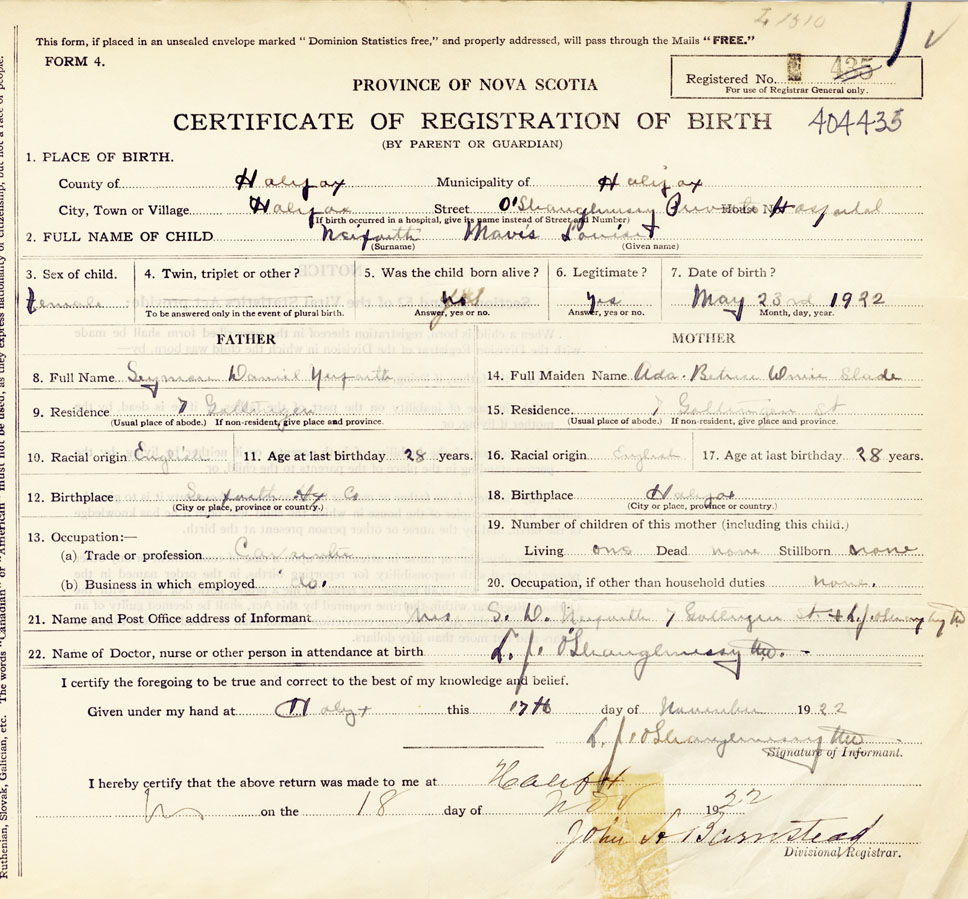 1310
This form, if placed in an unsealed envelope marked "Dominion Statistics free," and properly addressed, will pass through the Mails "FREE."
FORM 4.
Registered No. 435
For use of Registrar General only.
PROVINCE OF NOVA SCOTIA
CERTIFICATE OF REGISTRATION OF BIRTH 404435
(BY PARENT OR GUARDIAN)
1. PLACE OF BIRTH.
County of Halifax Municipality of Halifax
City, Town or Village Halifax Street O'Shaughnessy Private House No. Hospital
(If birth occurred in a hospital, give its name instead of Street and Number)
2. FULL NAME OF CHILD Mavis Louise
(Surname) (Given name)
3. Sex of child. 4. Twin, triplet or other? 5. Was the child born alive? 6. Legitimate? 7. Date of birth?
Female yes Yes May 23rd 1922
To be answered only in the event of plural birth. Answer, yes or no. Answer, yes or no. Month, day, year.
FATHER MOTHER
8. Full Name Daniel 14. Full Maiden Name Ada Slade
9. Residence 7 15. Residence. 7 St
(Usual place of abode.) If non-resident, give place and province. (Usual place of abode.) If non-resident, give place and province.
10. Racial origin English 11. Age at last birthday 28 years. 16. Racial origin English 17. Age at last birthday 28 years.
12. Birthplace Seaforth Hx Co 18. Birthplace Halifax
(City or place, province or country.) (City or place, province or country.)
19. Number of children of this mother (including this child.)
13. Occupation:—
(a) Trade or profession Living one Dead none Stillborn none
(b) Business in which employed do. 20. Occupation, if other than household duties None.
21. Name and Post Office address of Informant Mrs S. D. 7 St. + L. J. O'Shaughnessy MD
22. Name of Doctor, nurse or other person in attendance at birth L. J. O'Shaughnessy MD.
I certify the foregoing to be true and correct to the best of my knowledge and belief.
Given under my hand at this 17th day of November 1922
L. J. O'Shaughnessy MD
Signature of Informant.
I hereby certify that the above return was made to me at Halifax
on the 18 day of Nov 1922
John A Barnstead
Divisional Registrar.
Ruthenian, Slovak, Galician, etc. The words "Canadian" or "American" must not be used, as they express nationality or citizenship, but not a race of people.